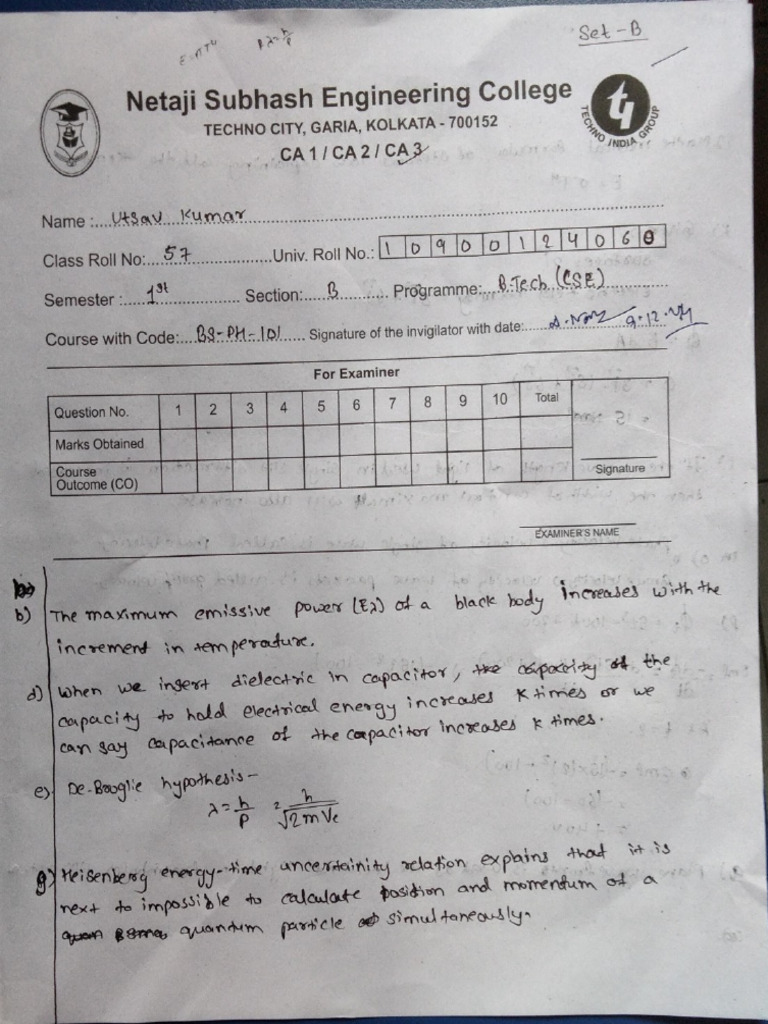 Set - B
Netaji Subhash Engineering College
TECHNO CITY, GARIA, KOLKATA - 700152
TECHNO INDIA GROUP
CA 1 / CA 2 / CA 3
Name : Utsav Kumar
Class Roll No: 57 Univ. Roll No.: 1 0 9 0 0 1 2 4 0 6 0
Semester : 1st Section: B Programme: B.Tech (CSE)
Course with Code: BS-PH-101 Signature of the invigilator with date: 9.12.24
For Examiner
Question No. 1 2 3 4 5 6 7 8 9 10 Total
Marks Obtained
Course Outcome (CO) Signature
EXAMINER'S NAME
b) The maximum emissive power (Eλ) of a black body increases with the
increment in temperature.
d) When we insert dielectric in capacitor, the capacity of the
capacity to hold electrical energy increases K times or we
can say capacitance of the capacitor increases k times.
e) De-Brooglie hypothesis -
λ = h/p = h/√2mVe
g) Heisenberg energy-time uncertainity relation explains that it is
next to impossible to calculate position and momentum of a
quantum particle simultaneously.